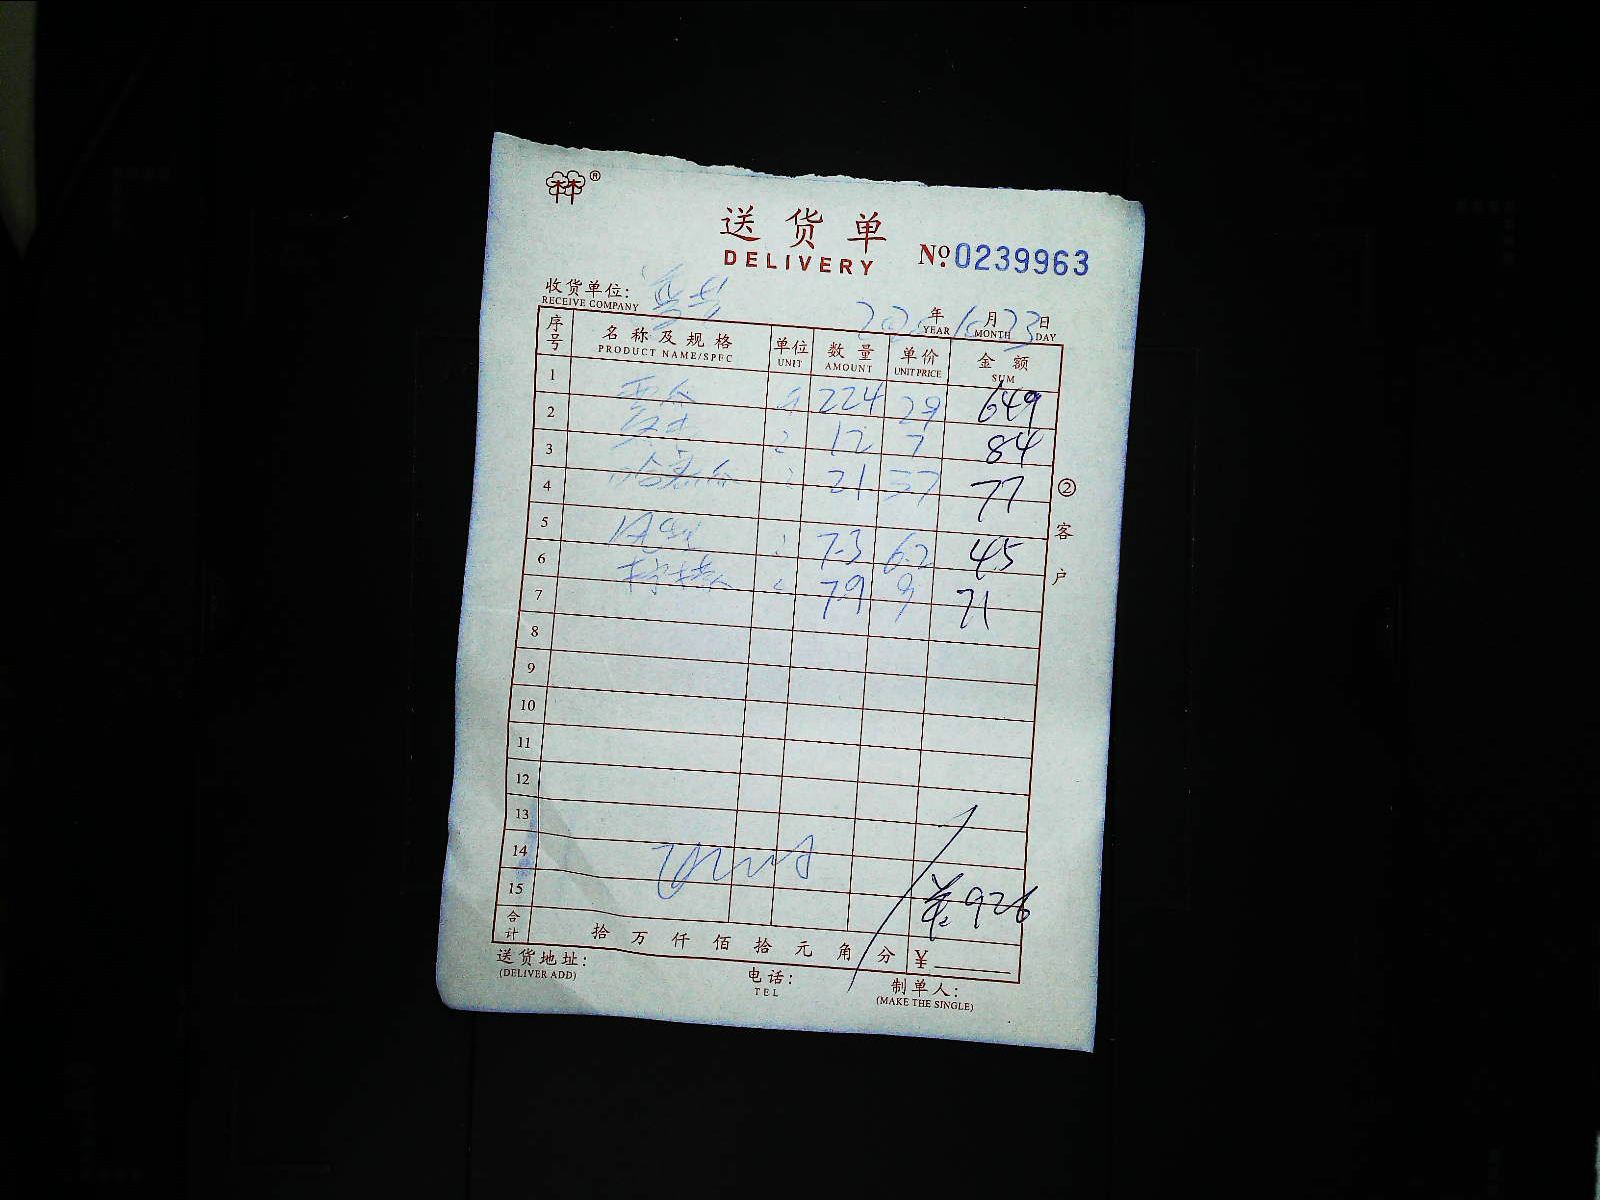 林®
送货单
DELIVERY
№0239963
收货单位:
RECEIVE COMPANY
年 10 月 23 日
YEAR MONTH DAY
序号 名称及规格 单位 数量 单价 金额
PRODUCT NAME/SPEC UNIT AMOUNT UNIT PRICE SUM
1 224 29 649
2 12 7 84
3 21 37 77
4
5 7.3 6.2 45
6 7.9 9 71
7
8
9
10
11
12
13
14
15 926
合计 拾 万 仟 佰 拾 元 角 分 ¥
送货地址:
(DELIVER ADD)
电话:
TEL
制单人:
(MAKE THE SINGLE)
②客户